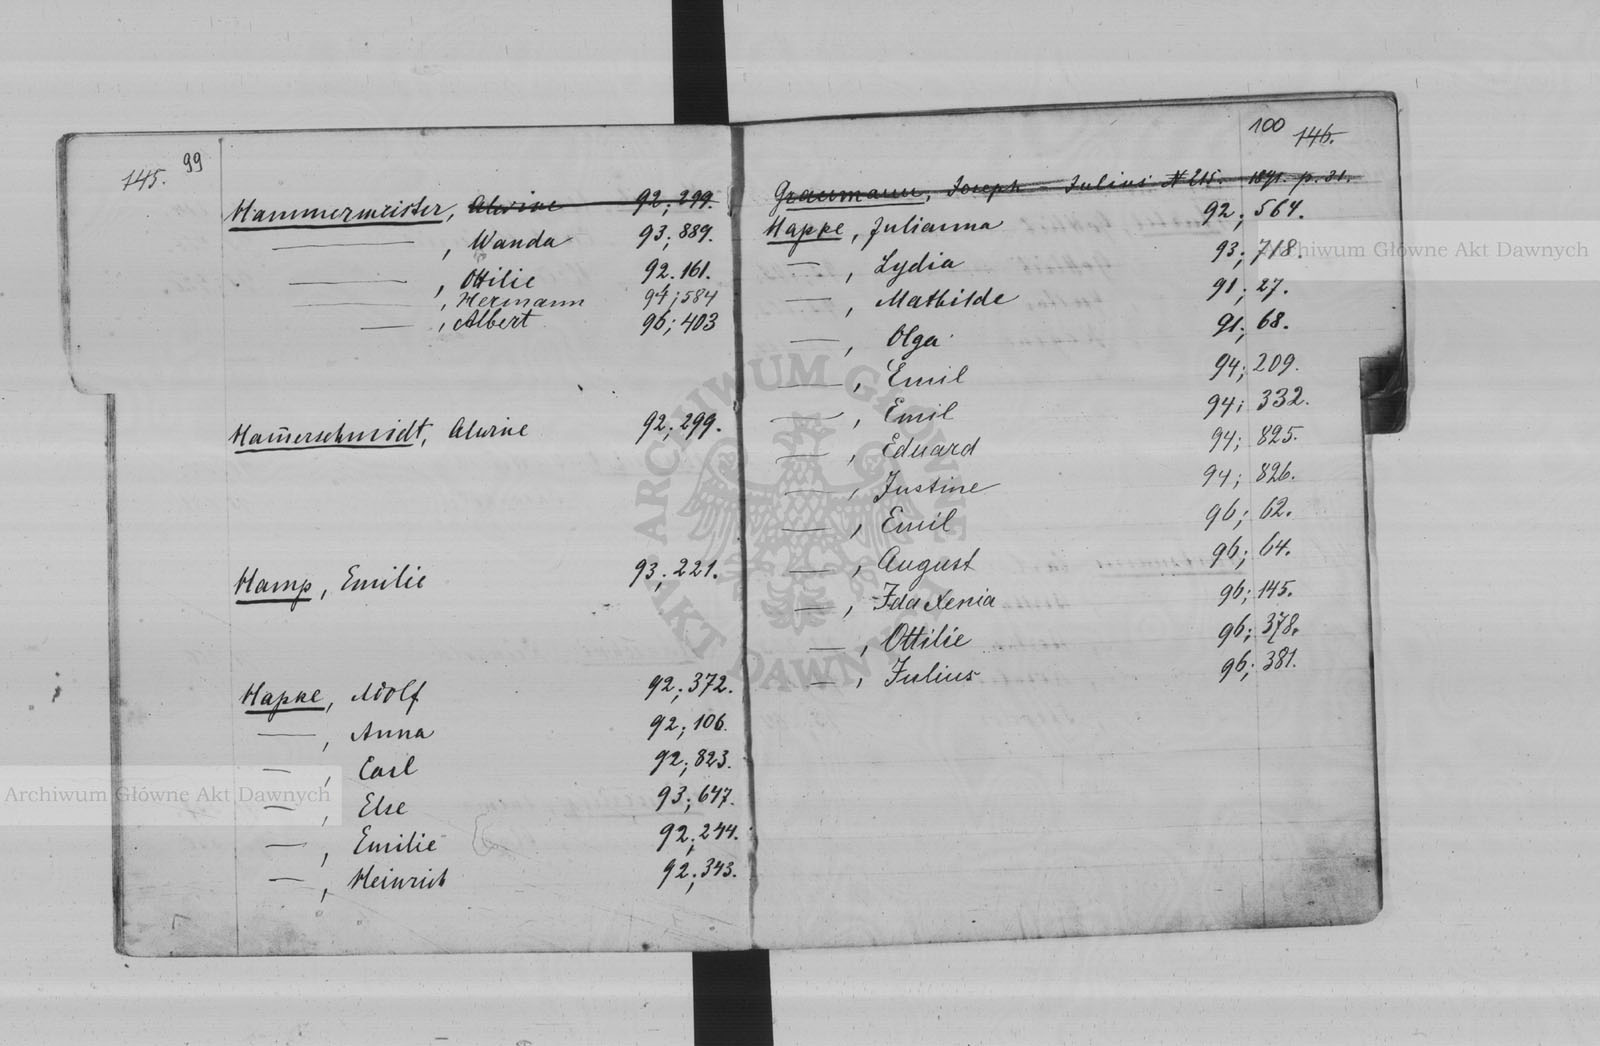 145. 99
Hammermeister, Alwine 92; 299.
— , Wanda 93; 889.
— , Ottilie 92. 161.
— , Hermann 94; 584
— , Albert 96; 403
Ham̅erschmidt, Alwine 92; 299.
Hamp, Emilie 93; 221.
Hapke, Adolf 92; 372.
— , Anna 92; 106.
— , Carl 92; 823.
— , Else 93; 647.
— , Emilie 92; 244.
— , Heinrich 92; 343.
100 146.
Graumann, Joseph - Julius N 215. 1891. p. 31.
Hapke, Julianna 92; 564.
— , Lydia 93; 718.
— , Mathilde 91; 27.
— , Olga 91; 68.
— , Emil 94; 209.
— , Emil 94; 332.
— , Eduard 94; 825.
— , Justine 94; 826.
— , Emil 96; 62.
— , August 96; 64.
— , Ida Xenia 96; 145.
— , Ottilie 96; 378.
— , Julius 96; 381.
Archiwum Główne Akt Dawnych
Archiwum Główne Akt Dawnych
ARCHIWUM GŁÓWNE AKT DAWNYCH